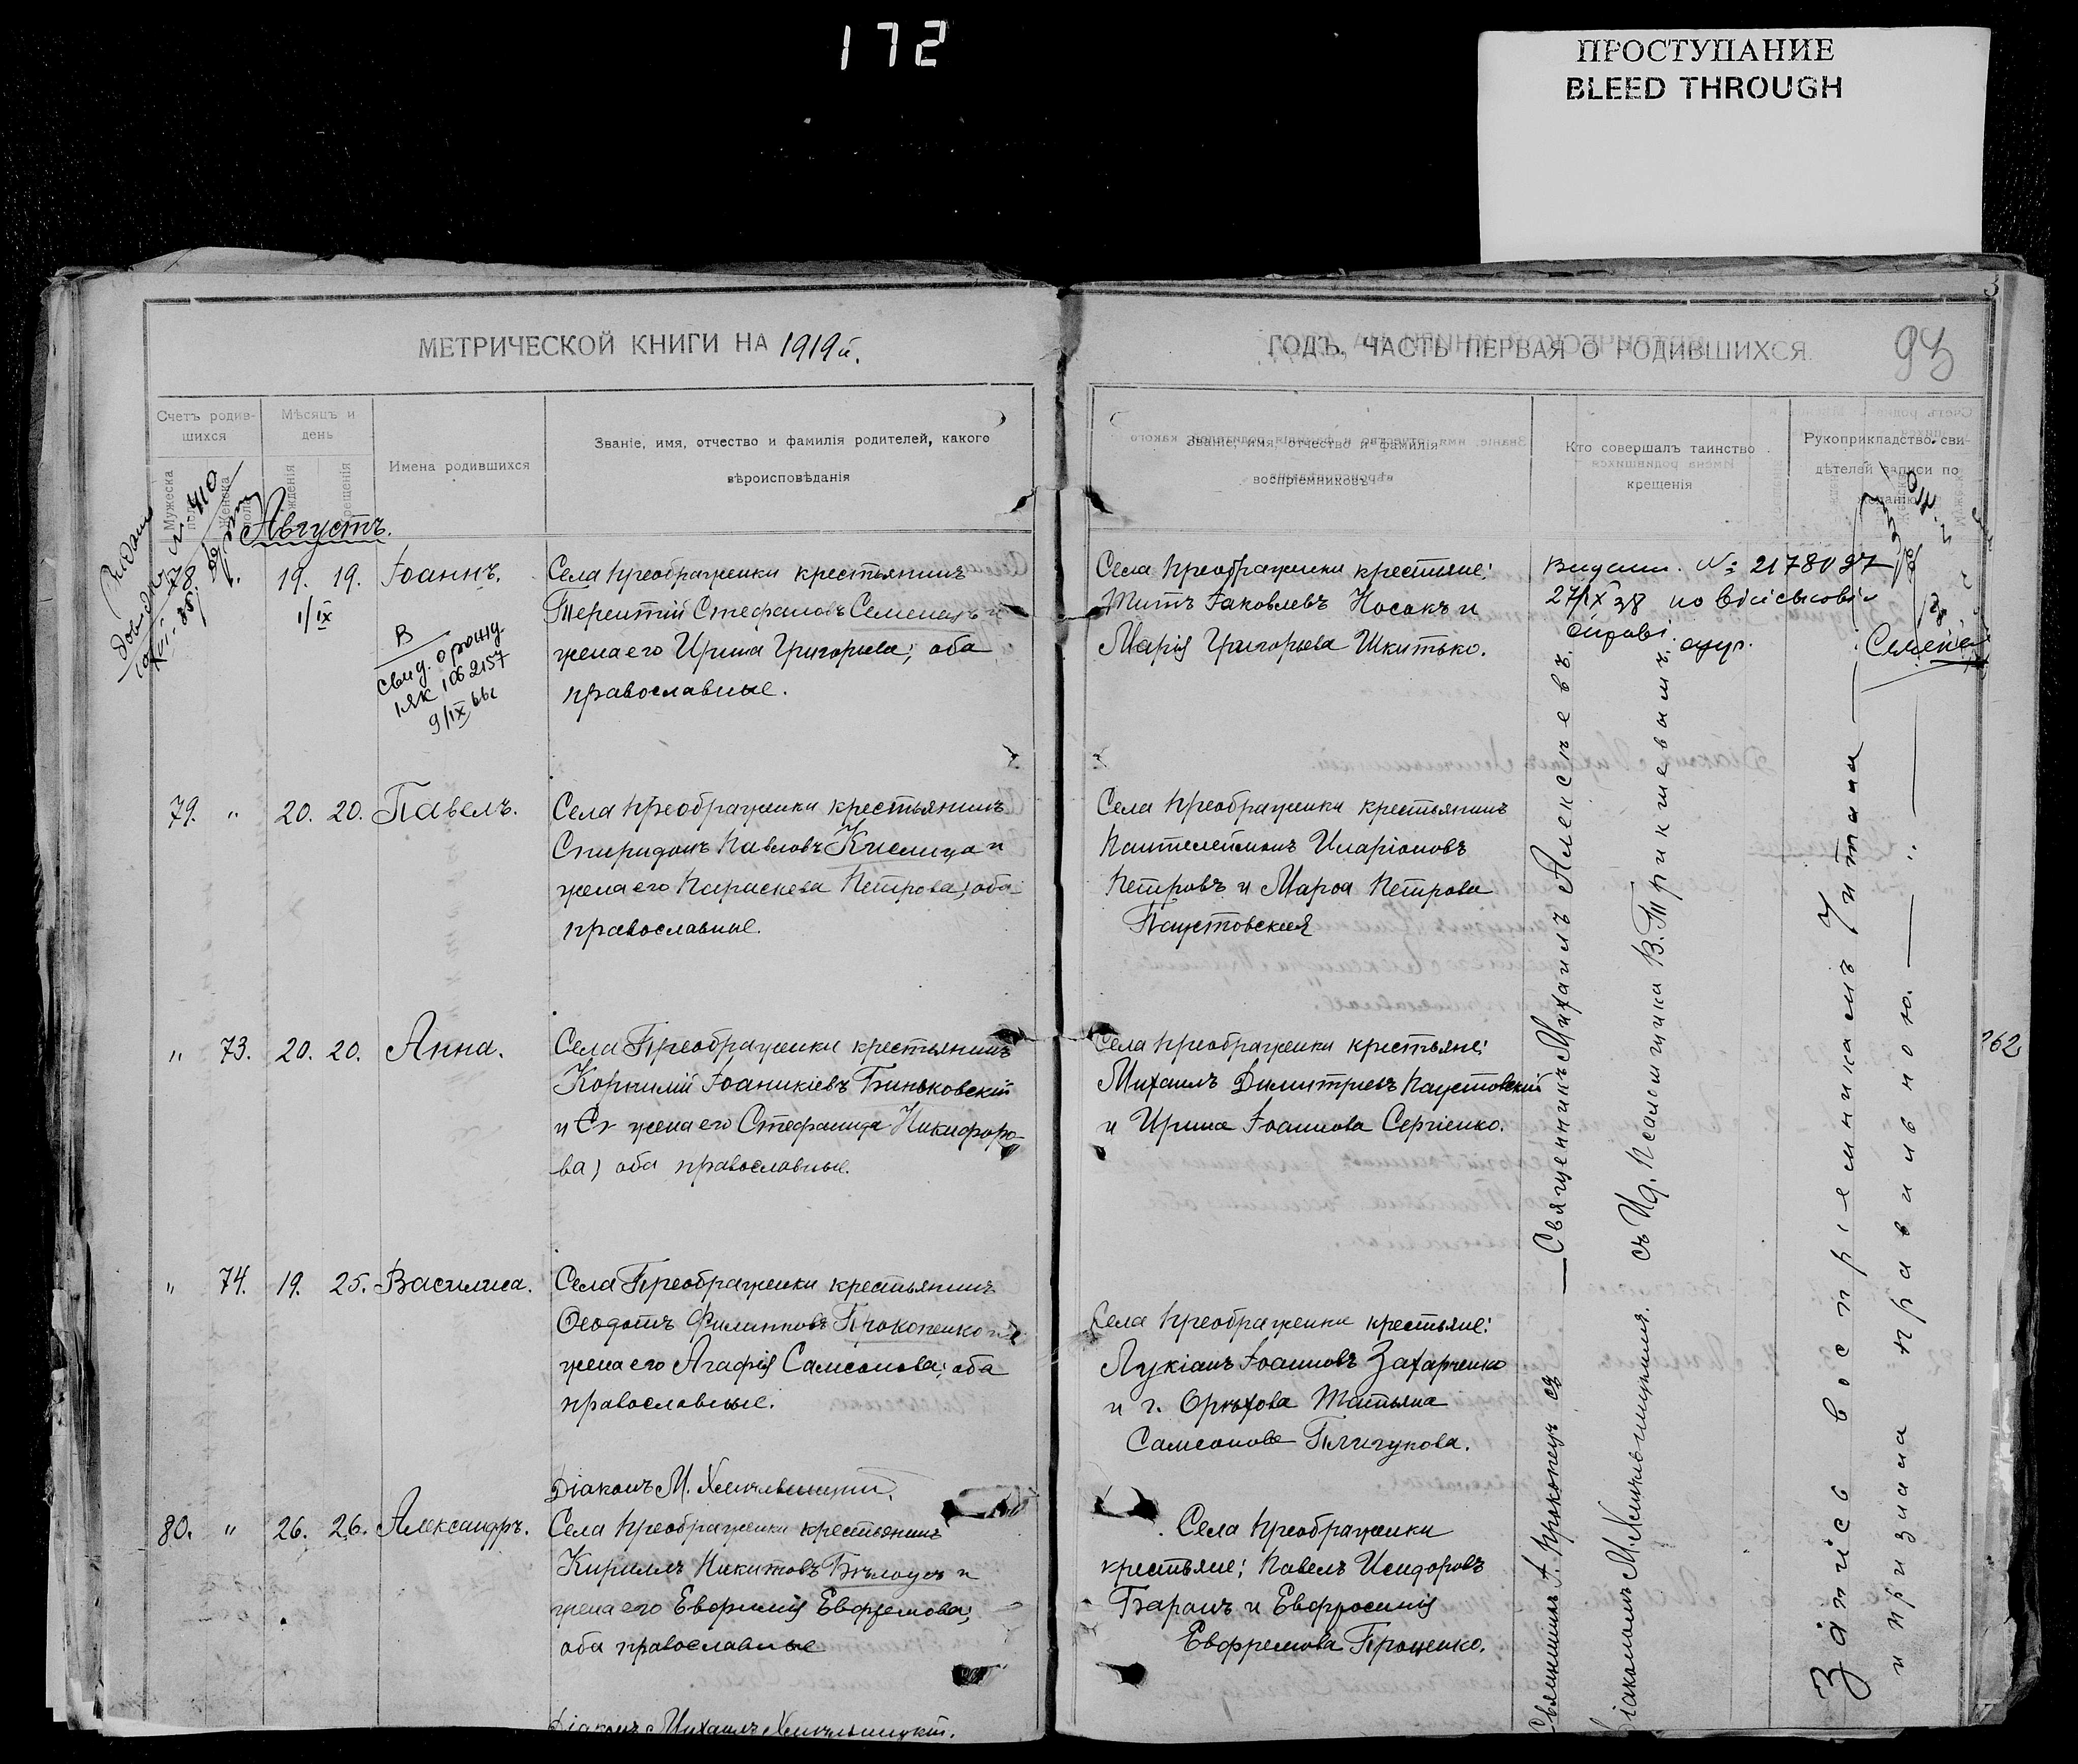 172
ПРОСТУПАНИЕ
BLEED THROUGH
МЕТРИЧЕСКОЙ КНИГИ НА 1919й.
Счетъ родив-
шихся
Мѣсяцъ и
день
Имена родившихся
Званіе, имя, отчество и фамилія родителей, какого
вѣроисповѣданія
Августъ.
78. 19. 19. Іоаннъ.
1/IX
В
свид. о рожд
1062157
9/IX
Села Преображенки крестьянинъ
Терентій Стефановъ Семенецъ и
жена его Ирина Григорьева; оба
православные.
79. " 20. 20. Павелъ.
Села Преображенки крестьянинъ
Спиридонъ Павловъ Кислица и
жена его Параскева Петрова; оба
православные.
" 73. 20. 20. Анна.
Села Преображенки крестьянинъ
Корнилій Іоаникіевъ Биньковскій
и жена его Стефанида Никифоро-
ва; оба православные.
" 74. 19. 25. Василиса.
Села Преображенки крестьянинъ
Ѳеодотъ Филипповъ Прокопенко и
жена его Агафія Самсонова; оба
православные.
Діаконъ М. Хмѣльницкій.
80. " 26. 26. Александръ.
Села Преображенки крестьянинъ
Кириллъ Никитовъ Бѣлоусъ и
жена его Евфимія Евфремова;
оба православные
Діаконъ Михаилъ Хмѣльницкій.
ГОДЪ. ЧАСТЬ ПЕРВАЯ О РОДИВШИХСЯ.
93
Званіе, имя, отчество и фамилія
воспріемниковъ
Кто совершалъ таинство
крещенія
Рукоприкладство сви-
дѣтелей записи по
желанію
Села Преображенки крестьяне:
Титъ Іаковлевъ Носакъ и
Марія Григорьева Шкитько.
Видано. № 2178037
27/IX 38 по військовій
справі.
Села Преображенки крестьянинъ
Пантелеймонъ Иларіоновъ
Петровъ и Марѳа Петрова
Паустовская
Села Преображенки крестьяне:
Михаилъ Димитріевъ Паустовскій
и Ирина Іоаннова Сергіенко.
262
Села Преображенки крестьяне:
Лукіанъ Іоанновъ Захарченко
и г. Орѣхова Татьяна
Самсонова Пличукова.
Села Преображенки
крестьяне: Павелъ Исидоровъ
Баранъ и Евфросинія
Евфремова Проценко.
Священникъ Михаилъ Алексѣевъ
съ Ид. Псаломщика В. Трикшевымъ.
Священникъ А. Прокопецъ съ
Діакономъ М. Хмѣльницкимъ.
Запись воспріемникамъ читана
и признана правильною.